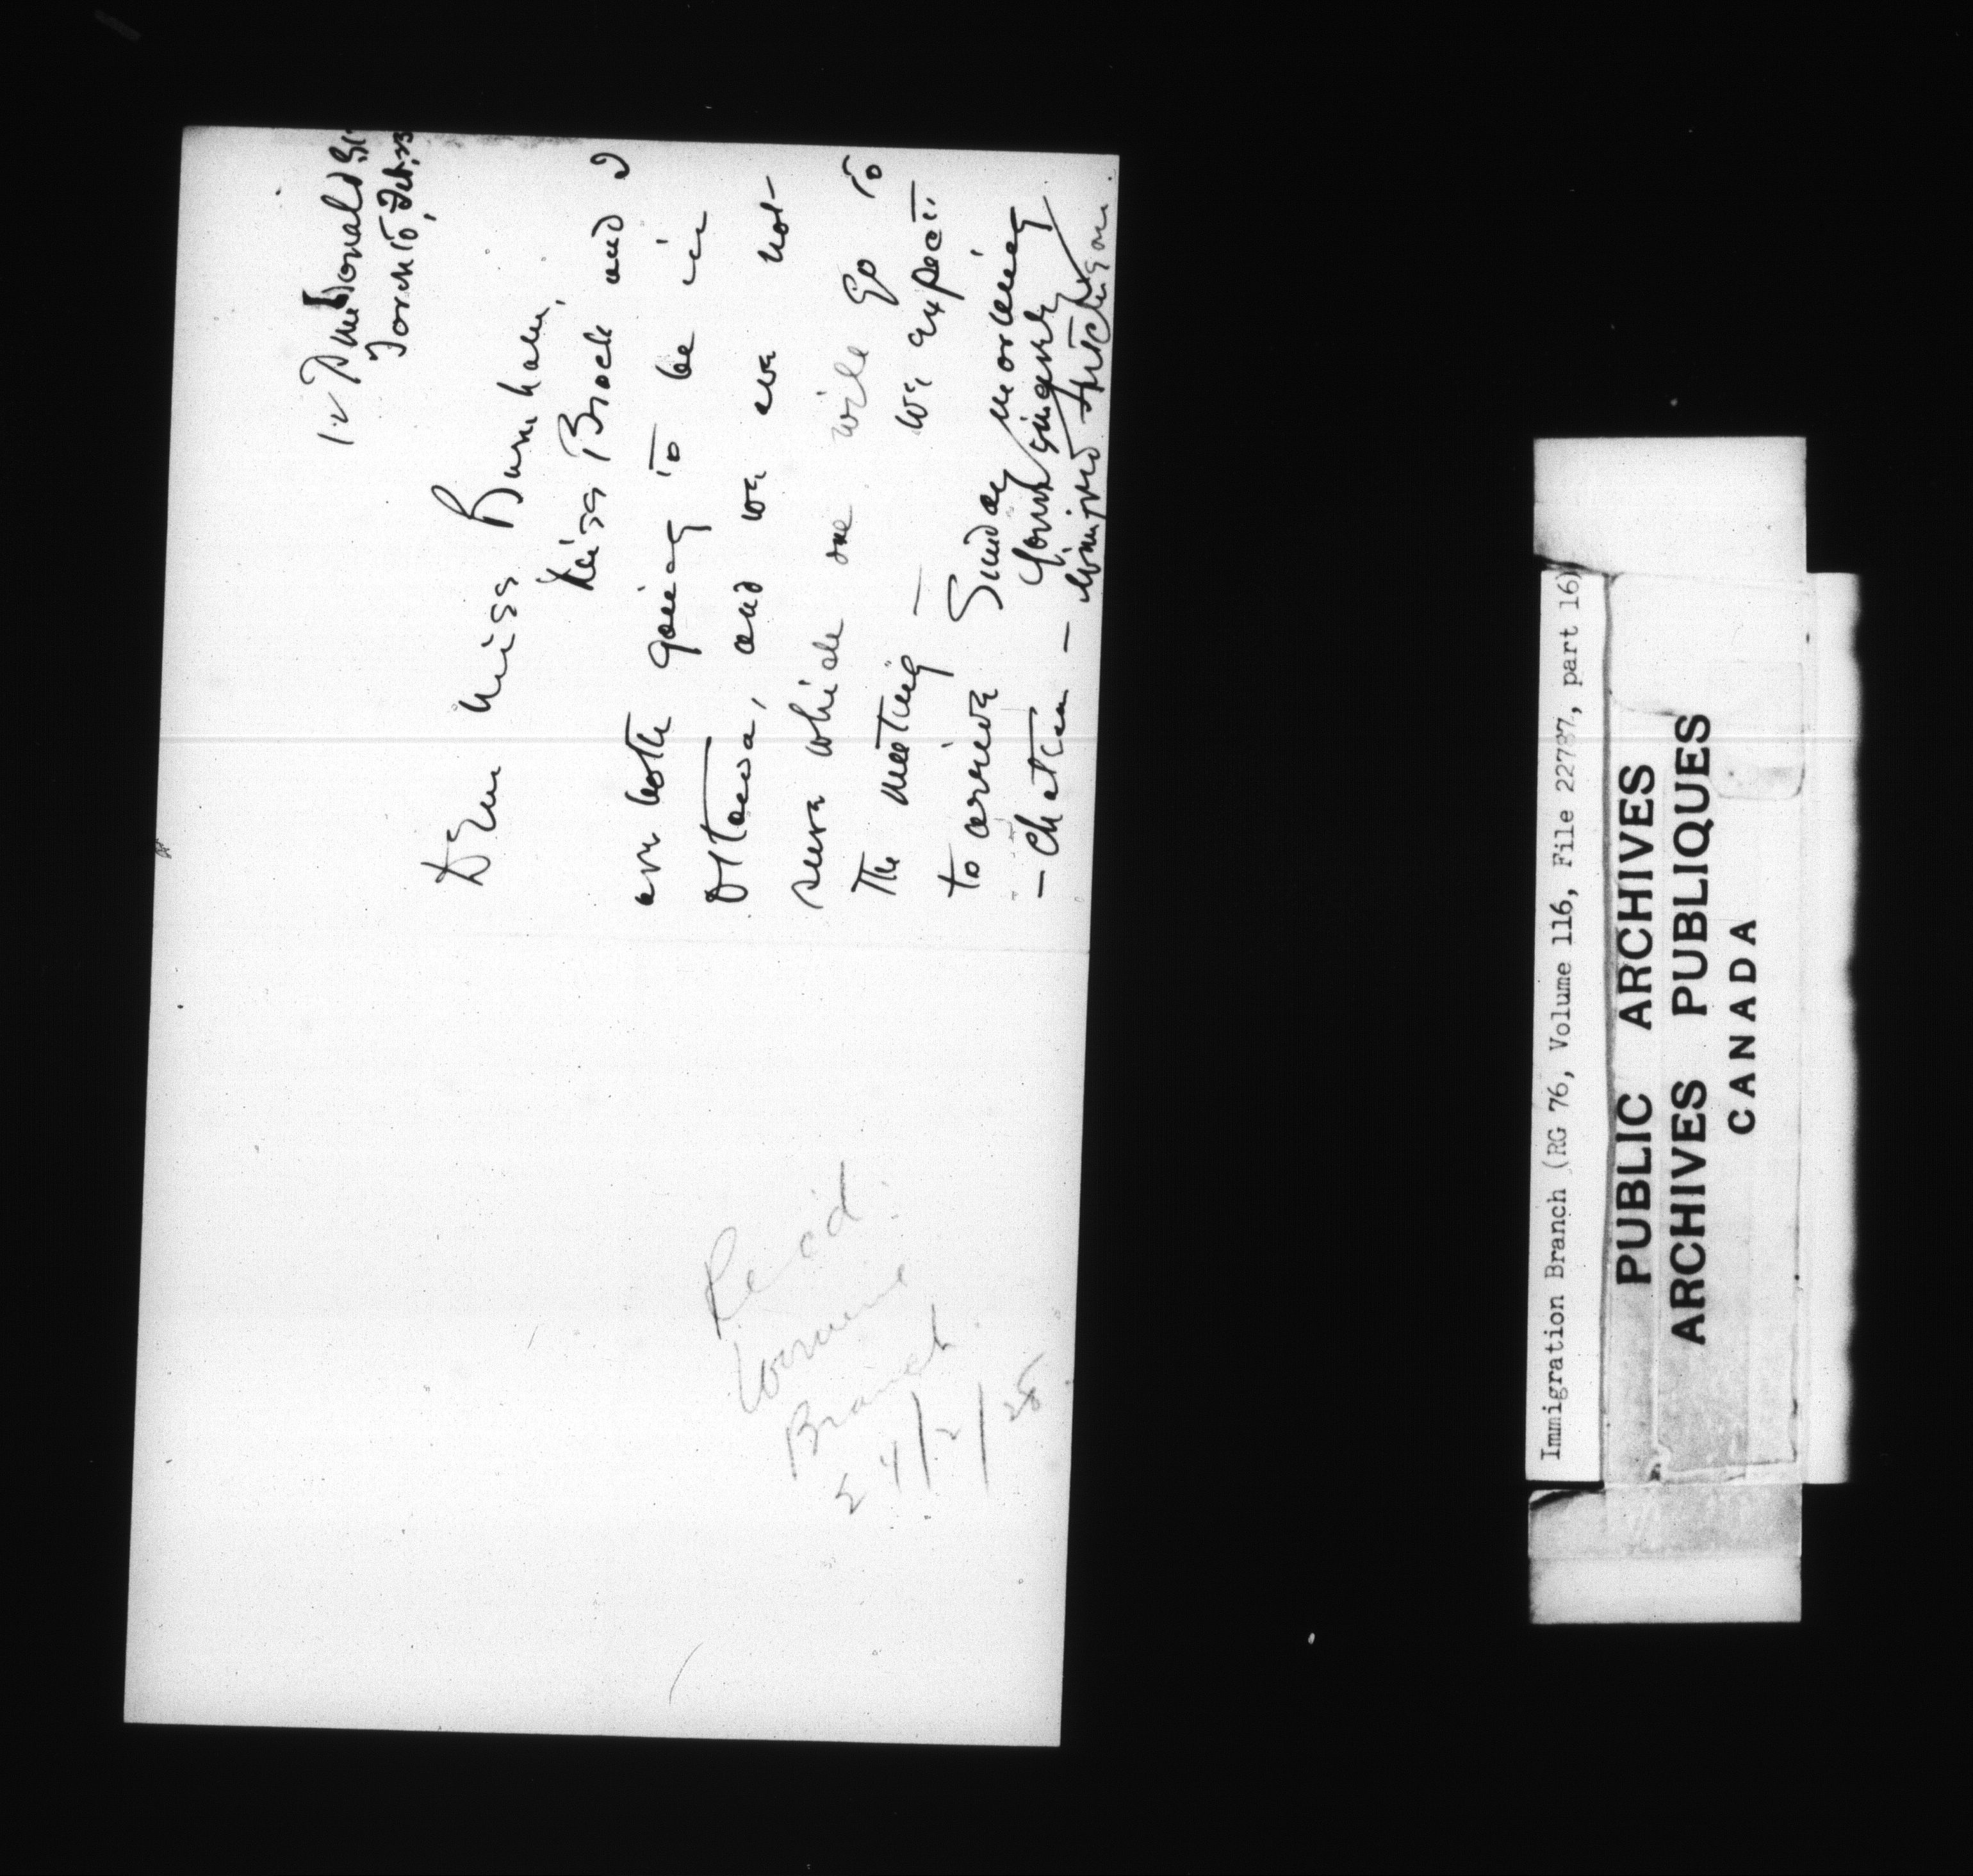 12 MacDonald St
Toronto, Feb. 23
Dear Miss Burnham,
Miss Brock and I
are both going to be in
Ottawa, and we are not
sure which one will go to
the meeting — we expect
to arrive Sunday morning
- Chateau - Yours sincerely
Winifred Hutchison
Rec'd
Women's
Branch
24/2/28
Immigration Branch (RG 76, Volume 116, File 22787, part 16)
PUBLIC ARCHIVES
ARCHIVES PUBLIQUES
CANADA